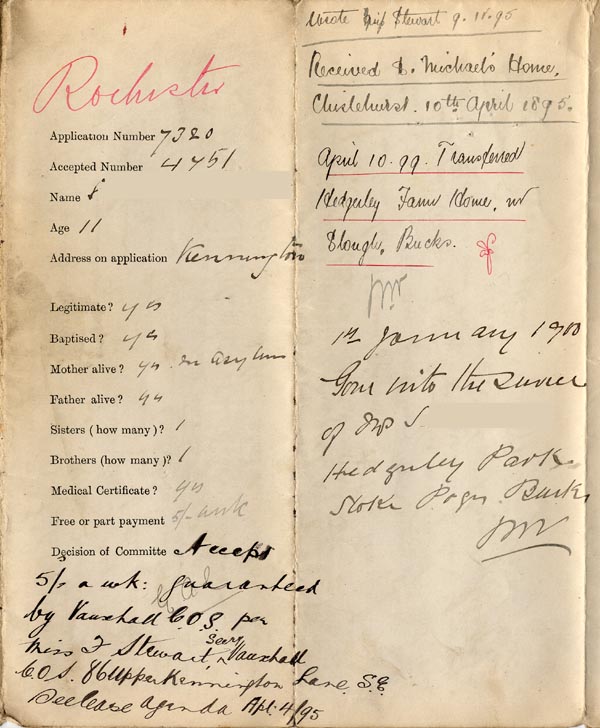 Rochester
Application Number 7320
Accepted Number 4451
Name
Age 11
Address on application Kennington
Legitimate? yes
Baptised? yes
Mother alive? yes. In asylum
Father alive? yes
Sisters (how many)? 1
Brothers (how many)? 1
Medical Certificate? yes
Free or part payment 5/- a wk
Decision of Committe Accept
5/- a wk: guaranteed
by Vauxhall C O S per
Miss F Stewart, Secy Vauxhall
C O S. 86 Upper Kennington Lane. S.E.
See Case Agenda Apl. 4/95
Wrote Miss Stewart 9. 95
Received St. Michael's Home,
Chislehurst. 10th April 1895.
April 10. 99. Transferred
Hedgerley Farm Home, nr
Slough, Bucks.
1st January 1900
Gone into the service
of
Hedgerley Park
Stoke Poges Bucks